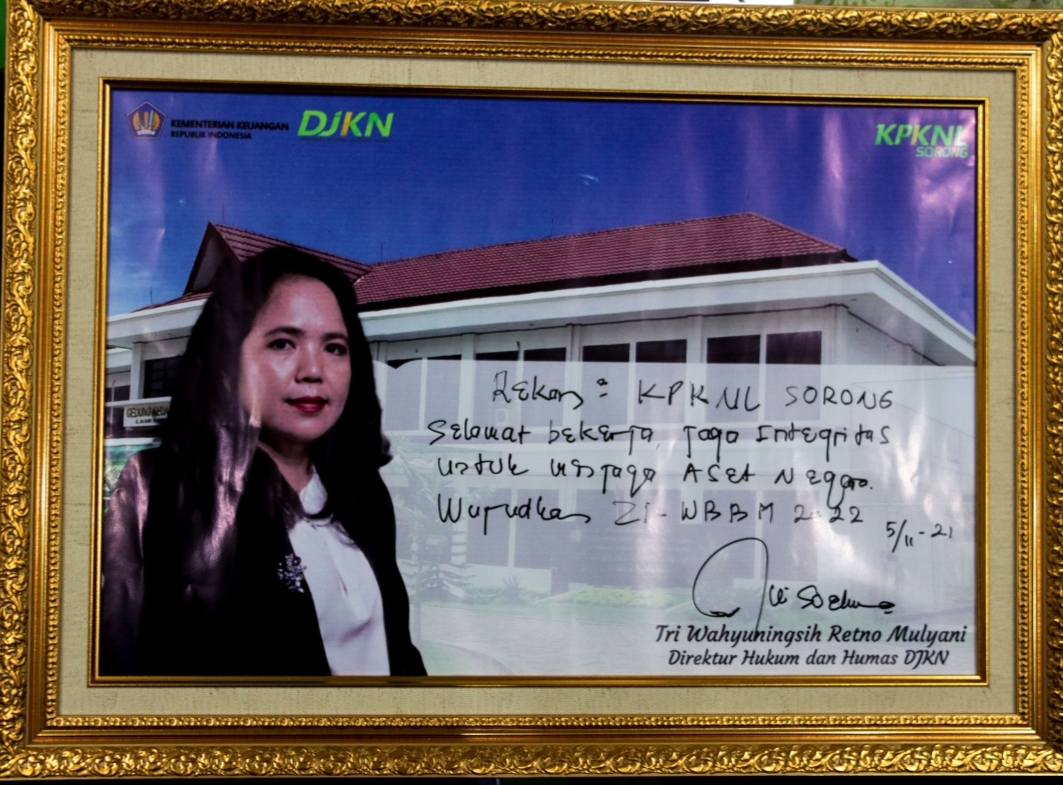 KEMENTERIAN KEUANGAN
REPUBLIK INDONESIA
DJKN
KPKNL
SORONG
Rekan² KPKNL SORONG
Selamat bekerja, Jaga Integritas
untuk menjaga Aset Negara.
Wujudkan ZI-WBBM 2022
5/11-21
Tri Wahyuningsih Retno Mulyani
Direktur Hukum dan Humas DJKN